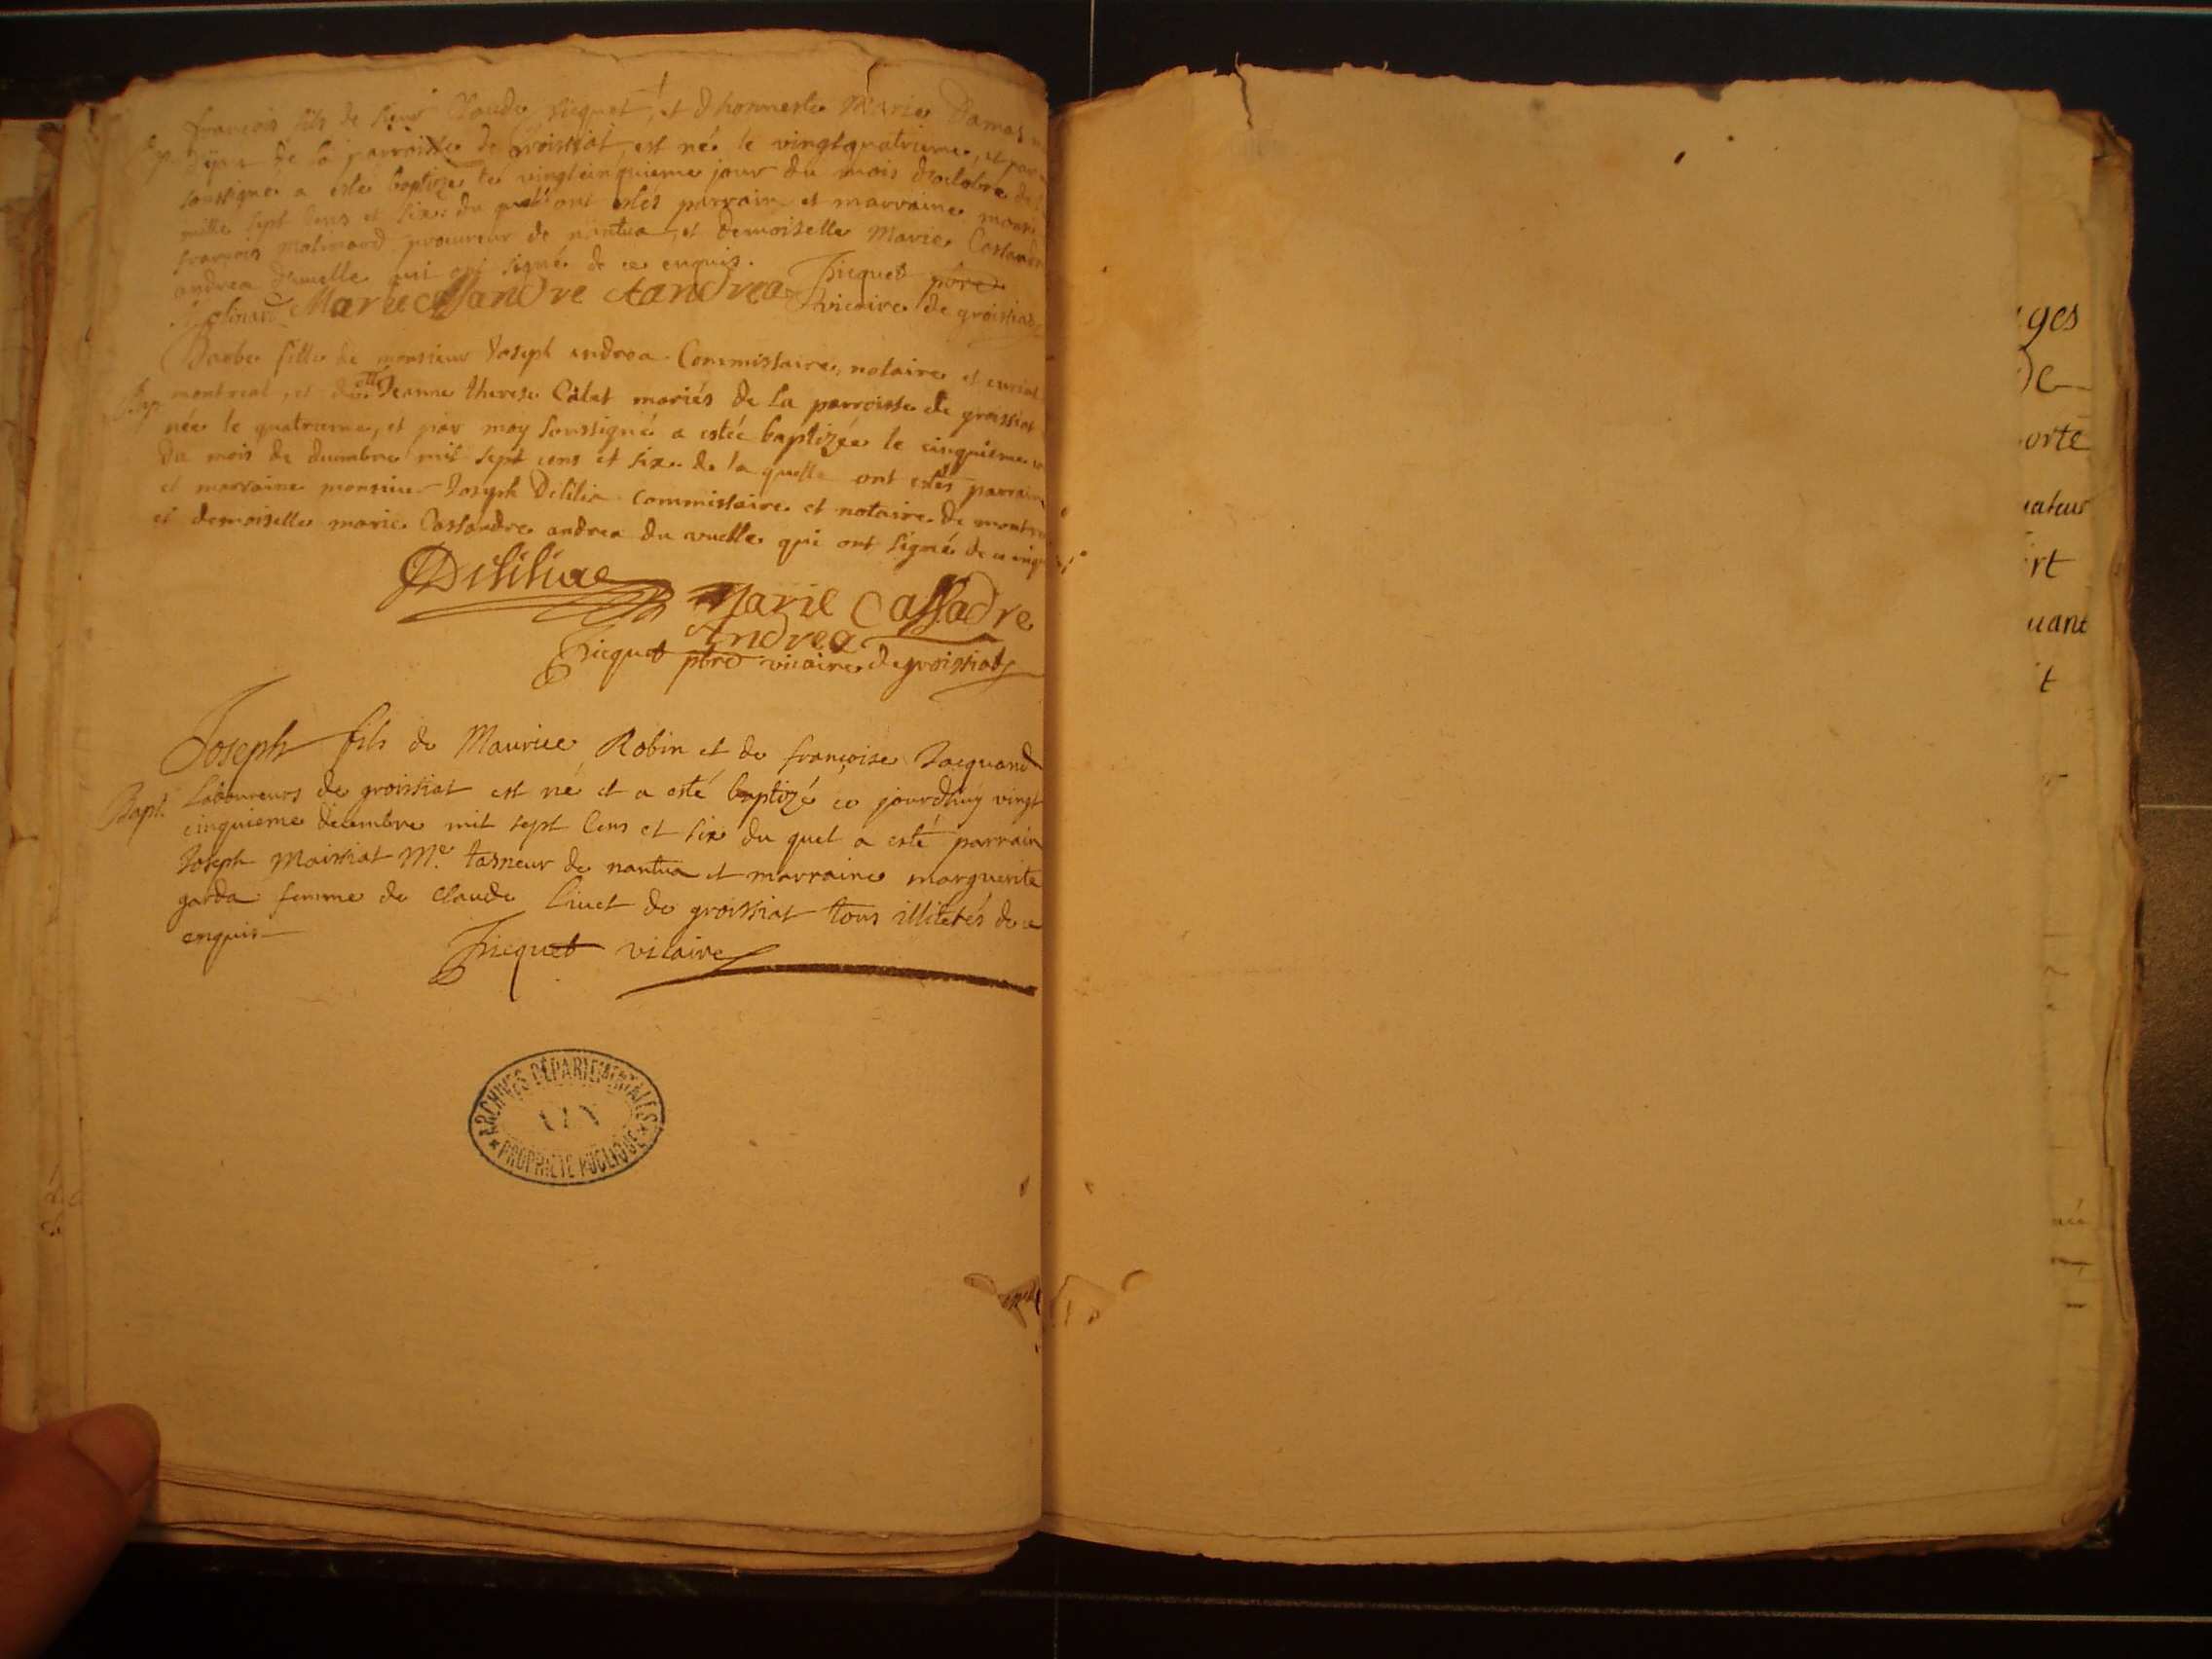 françois fils de sieur Claude Jicquet, et d'honneste Marie Damas
Bap. d'Ijean de la parroisse de Groissiat, est né le vingtquatrieme, et par
soussigné a esté baptizé le vingtcinquieme jour du mois d'octobre de
mille sept cens et six: du quel ont estés parrain et marraine monsr
françois molinard procureur de nantua, et demoiselle Marie Cassandre
andrea Duvuelle qui ont signé de ce enquis.
Molinard Marie Cassandre Aandrea Jicquet pbre
vicaire de groissiat
Barbe fille de monsieur Joseph andrea Commissaire, notaire et curial
Bap. montreal, et de delle Jeanne therese Calet mariés de la parroisse de groissiat
née le quatrieme, et par moy soussigné a estée baptizée le cinquieme
du mois de decembre mil sept cens et six de la quelle ont estés parrain
et marraine monsieur Joseph Delilia commissaire et notaire de mont
et demoiselle marie Cassandre andrea du vuelle qui ont signé de ce enq
Deliliae
Marie Cassadre
Andrea
Jicquet pbre vicaire de groissiat
Joseph fils de Maurice Robin et de françoise Jacquand
Bapt. laboureurs de groissiat est né et a esté baptizé ce jourd'huy vingt
cinquieme decembre mil sept cens et six du quel a esté parrain
Joseph Maissiat Me. tasneur de nantua et marraine marguerite
garda femme de Claude Livet de groissiat tous illiterés de ce
enquis
Jicquet vicaire
ARCHIVES DÉPARTEMENTALES
AIN
PROPRIÉTÉ PUBLIQUE
ges
De
orte
ateur
rt
uant
t